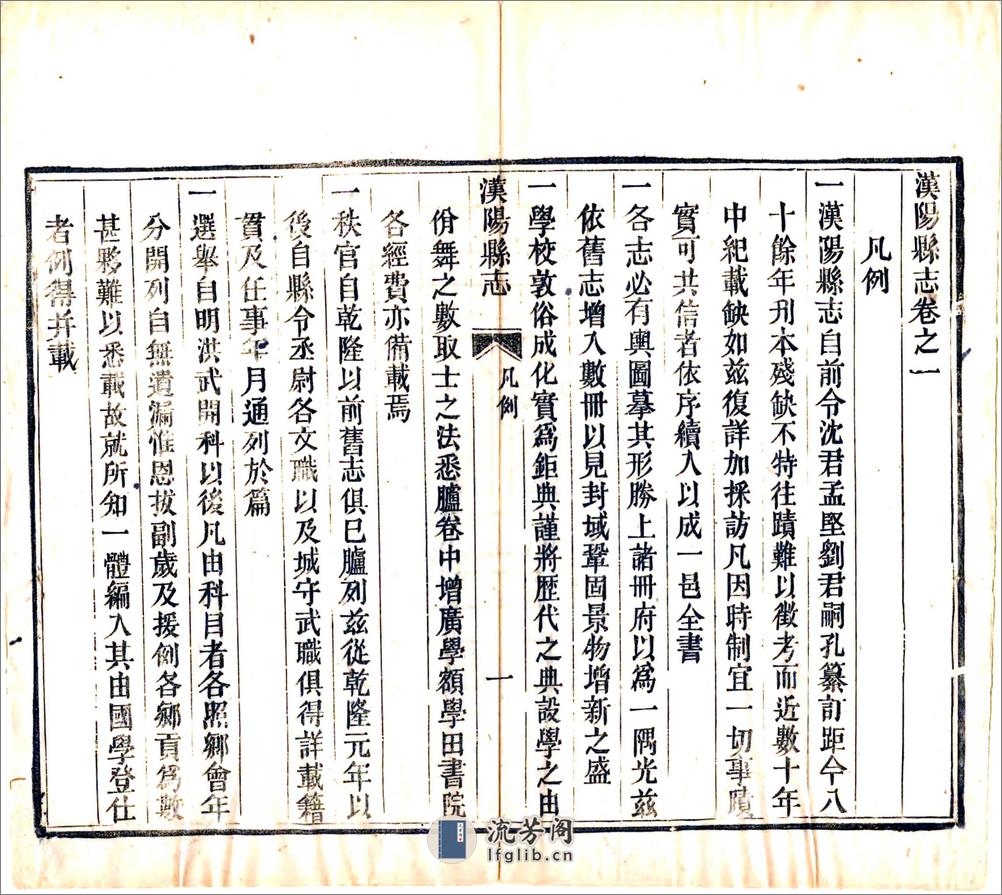 漢陽縣志卷之一
凡例
一漢陽縣志自前令沈君孟堅劉君嗣孔纂訂距今八
十餘年刊本殘缺不特往蹟難以徵考而近數十年
中紀載缺如茲復詳加採訪凡因時制宜一切事蹟
實可共信者依序續入以成一邑全書
一各志必有輿圖摹其形勝上諸冊府以爲一隅光茲
依舊志增入數冊以見封域鞏固景物增新之盛
一學校敦俗成化實爲鉅典謹將歷代之典設學之由
漢陽縣志
凡例
一
佾舞之數取士之法悉臚卷中增廣學額學田書院
各經費亦備載焉
一秩官自乾隆以前舊志俱已臚列茲從乾隆元年以
後自縣令丞尉各文職以及城守武職俱得詳載籍
貫及任事年月通列於篇
一選舉自明洪武開科以後凡由科目者各照鄉會年
分開列自無遺漏惟恩拔副歲及援例各鄉貢爲數
甚夥難以悉載故就所知一體編入其由國學登仕
者例得并載
流芳阁
lfglib.cn